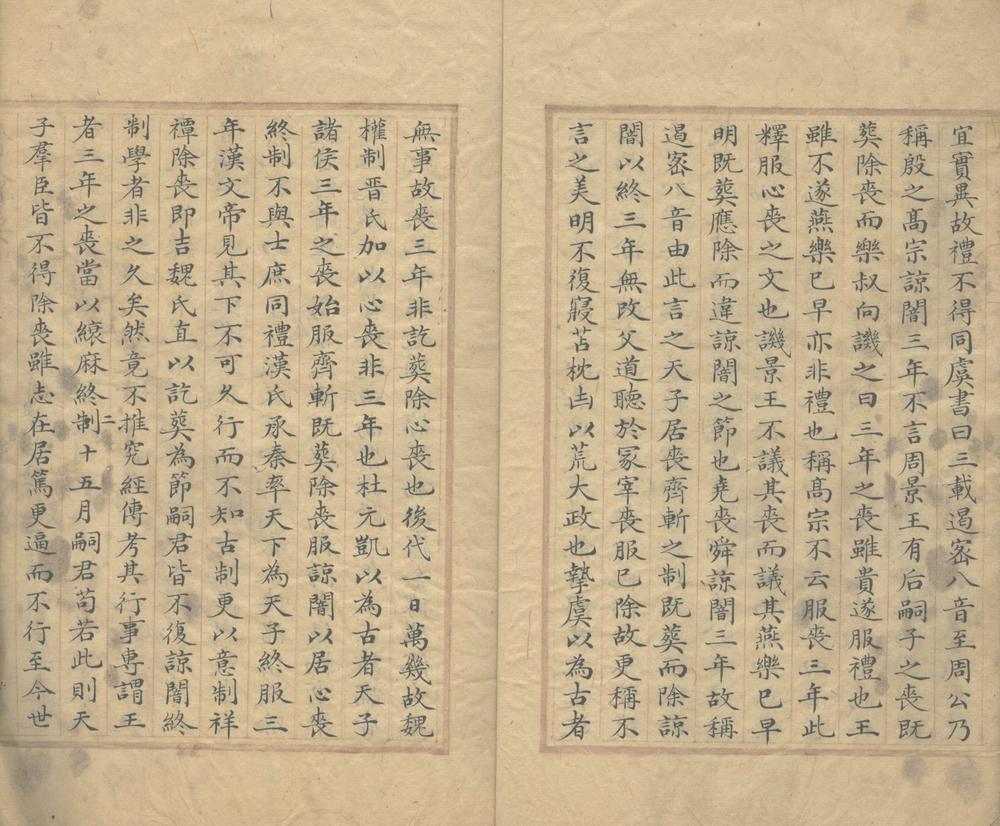 宜實異故禮不得同虞書曰三載遏宻八音至周公乃
稱殷之髙宗諒闇三年不言周景王有后嗣子之喪既
葬除喪而樂叔向譏之曰三年之喪雖貴遂服禮也王
雖不遂燕樂已早亦非禮也稱髙宗不云服喪三年此
釋服心喪之文也譏景王不議其喪而議其燕樂已早
明既葬應除而違諒闇之節也堯喪舜諒闇三年故稱
遏宻八音由此言之天子居喪齊斬之制既葬而除諒
闇以終三年無改父道聽於冢宰喪服已除故更稱不
言之美明不復寢苫枕凷以荒大政也摯虞以為古者
無事故喪三年非訖葬除心喪也後代一日萬幾故魏
權制晉氏加以心喪非三年也杜元凱以為古者天子
諸侯三年之喪始服齊斬既葬除喪服諒闇以居心喪
終制不與士庶同禮漢氏承秦率天下為天子終服三
年漢文帝見其下不可久行而不知古制更以意制祥
禫除喪即吉魏氏直以訖葬為節嗣君皆不復諒闇終
制學者非之久矣然竟不推究經傳考其行事專謂王
者三年之喪當以縗麻終制二十五月嗣君苟若此則天
子羣臣皆不得除喪雖志在居篤更逼而不行至今世